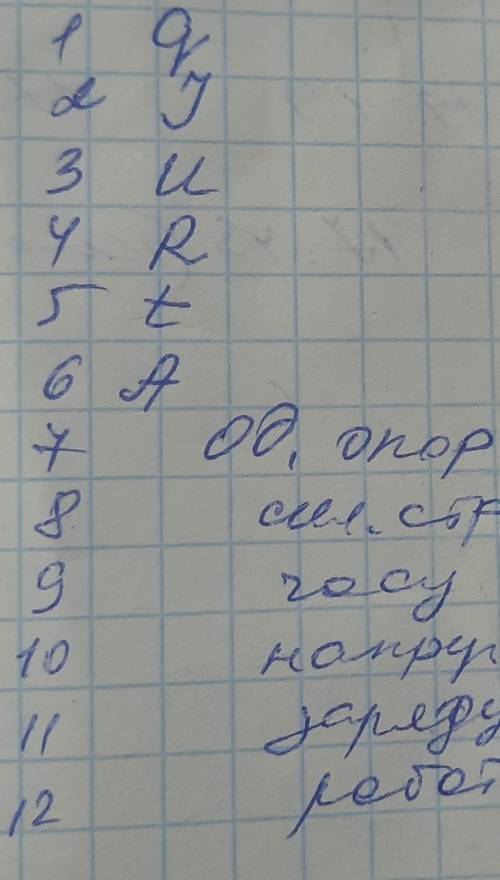 1 q
2 I
3 U
4 R
5 t
6 A
7 од. опор
8 сил. стр
9 часу
10 напруг
11 заряду
12 робот